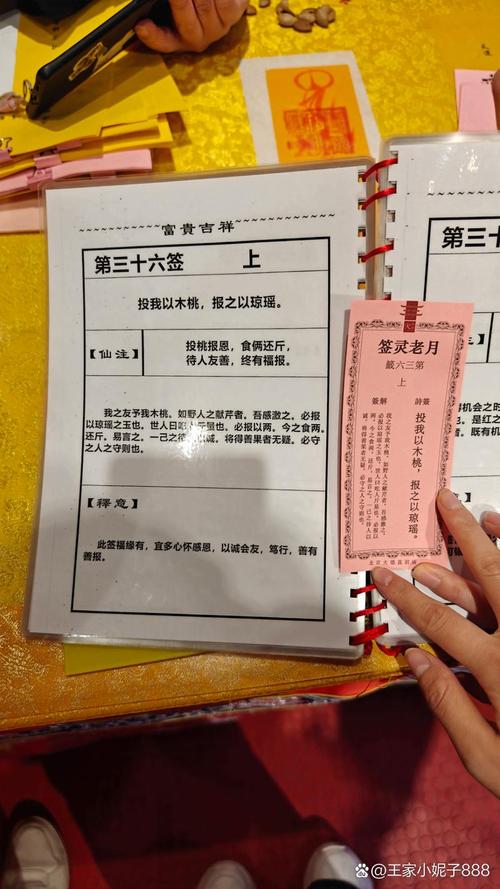 富貴吉祥
第三十六签 上
投我以木桃，报之以琼瑶。
【仙注】
投桃报恩，食俩还斤，
待人友善，终有福报。
我之友予我木桃。如野人之献芹者。吾感激之。必报
以琼瑶之玉也。世人曰吃
量也。必报以两。今之食两。
还斤。易言之。一己之待
诚。将得善果者无疑。必守
之人之守则也。
【釋意】
此签福缘有，宜多心怀感恩，以诚会友，笃行，善有
善报。
第三十
月老灵签
第三六籤
上
詩簽
投我以木桃，报之以琼瑶。
簽解
我之友予我木桃。如野人之献芹者。吾感激之。
必报以琼瑶之玉也。
@王家小妮子888